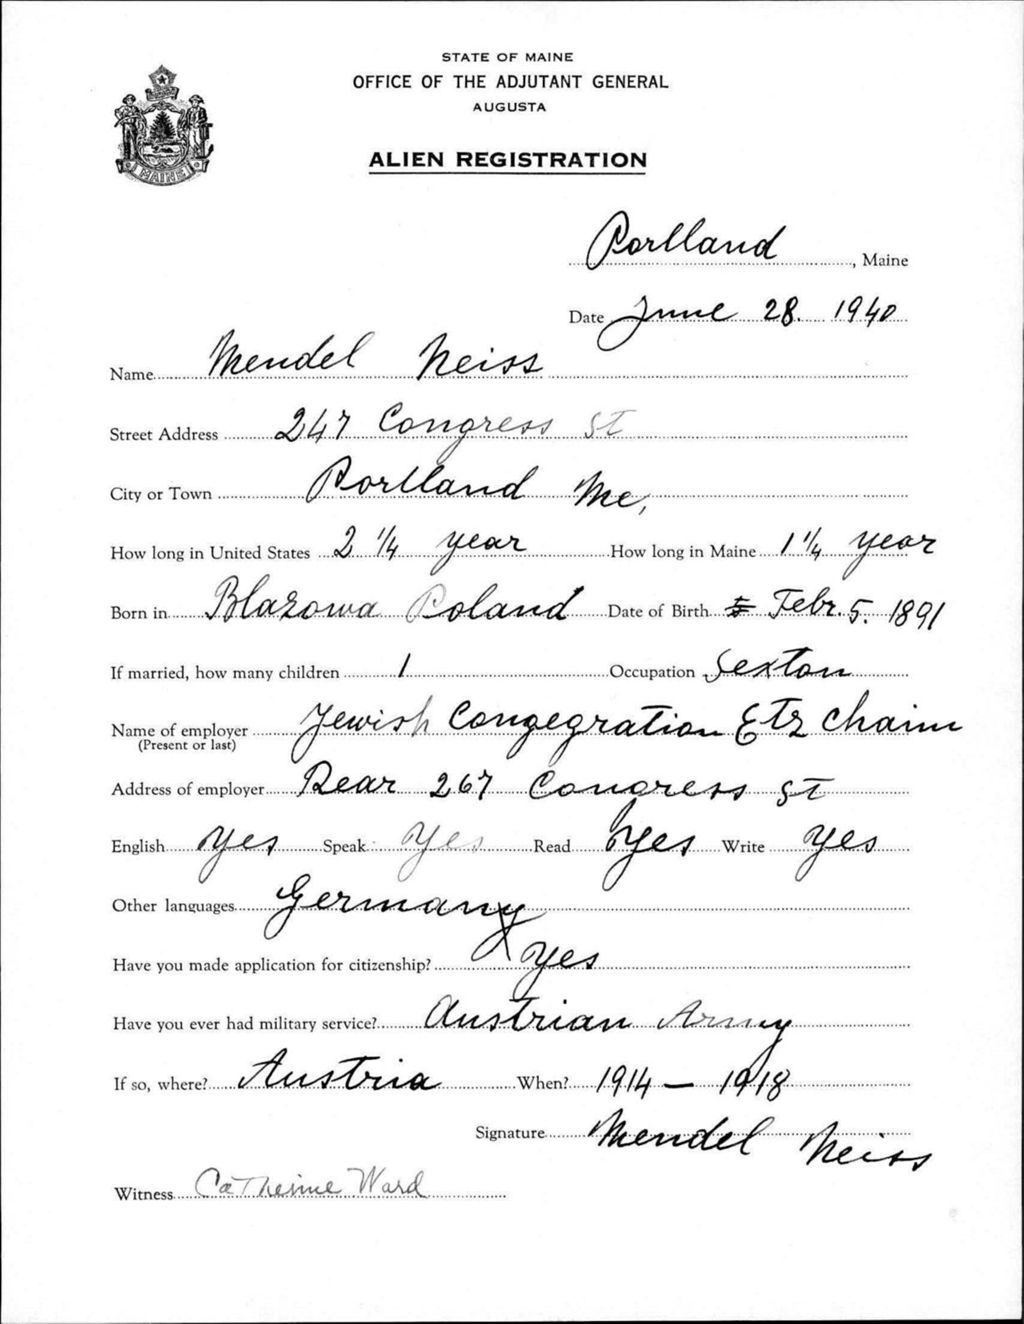 STATE OF MAINE
OFFICE OF THE ADJUTANT GENERAL
AUGUSTA
ALIEN REGISTRATION
MAINE
Portland, Maine
Date June 28. 1940
Name Mendel Neiss
Street Address 247 Congress St
City or Town Portland Me,
How long in United States 2 1/4 year How long in Maine 1 1/4 year
Born in Blazowa Poland Date of Birth Febr. 5. 1891
If married, how many children 1 Occupation Sexton
Name of employer Jewish Congegration Etz Chaim
(Present or last)
Address of employer Rear 267 Congress St
English yes Speak Yes Read Yes Write Yes
Other languages Germany
Have you made application for citizenship? Yes
Have you ever had military service? Austrian Army
If so, where? Austria When? 1914 — 1918
Signature Mendel Neiss
Witness Catherine Ward